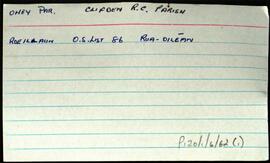 OMEY PAR. CLIFDEN R.C. PARISH
O.S. LIST 86 RUA-OILEÁN
P120/1/6/62(i)